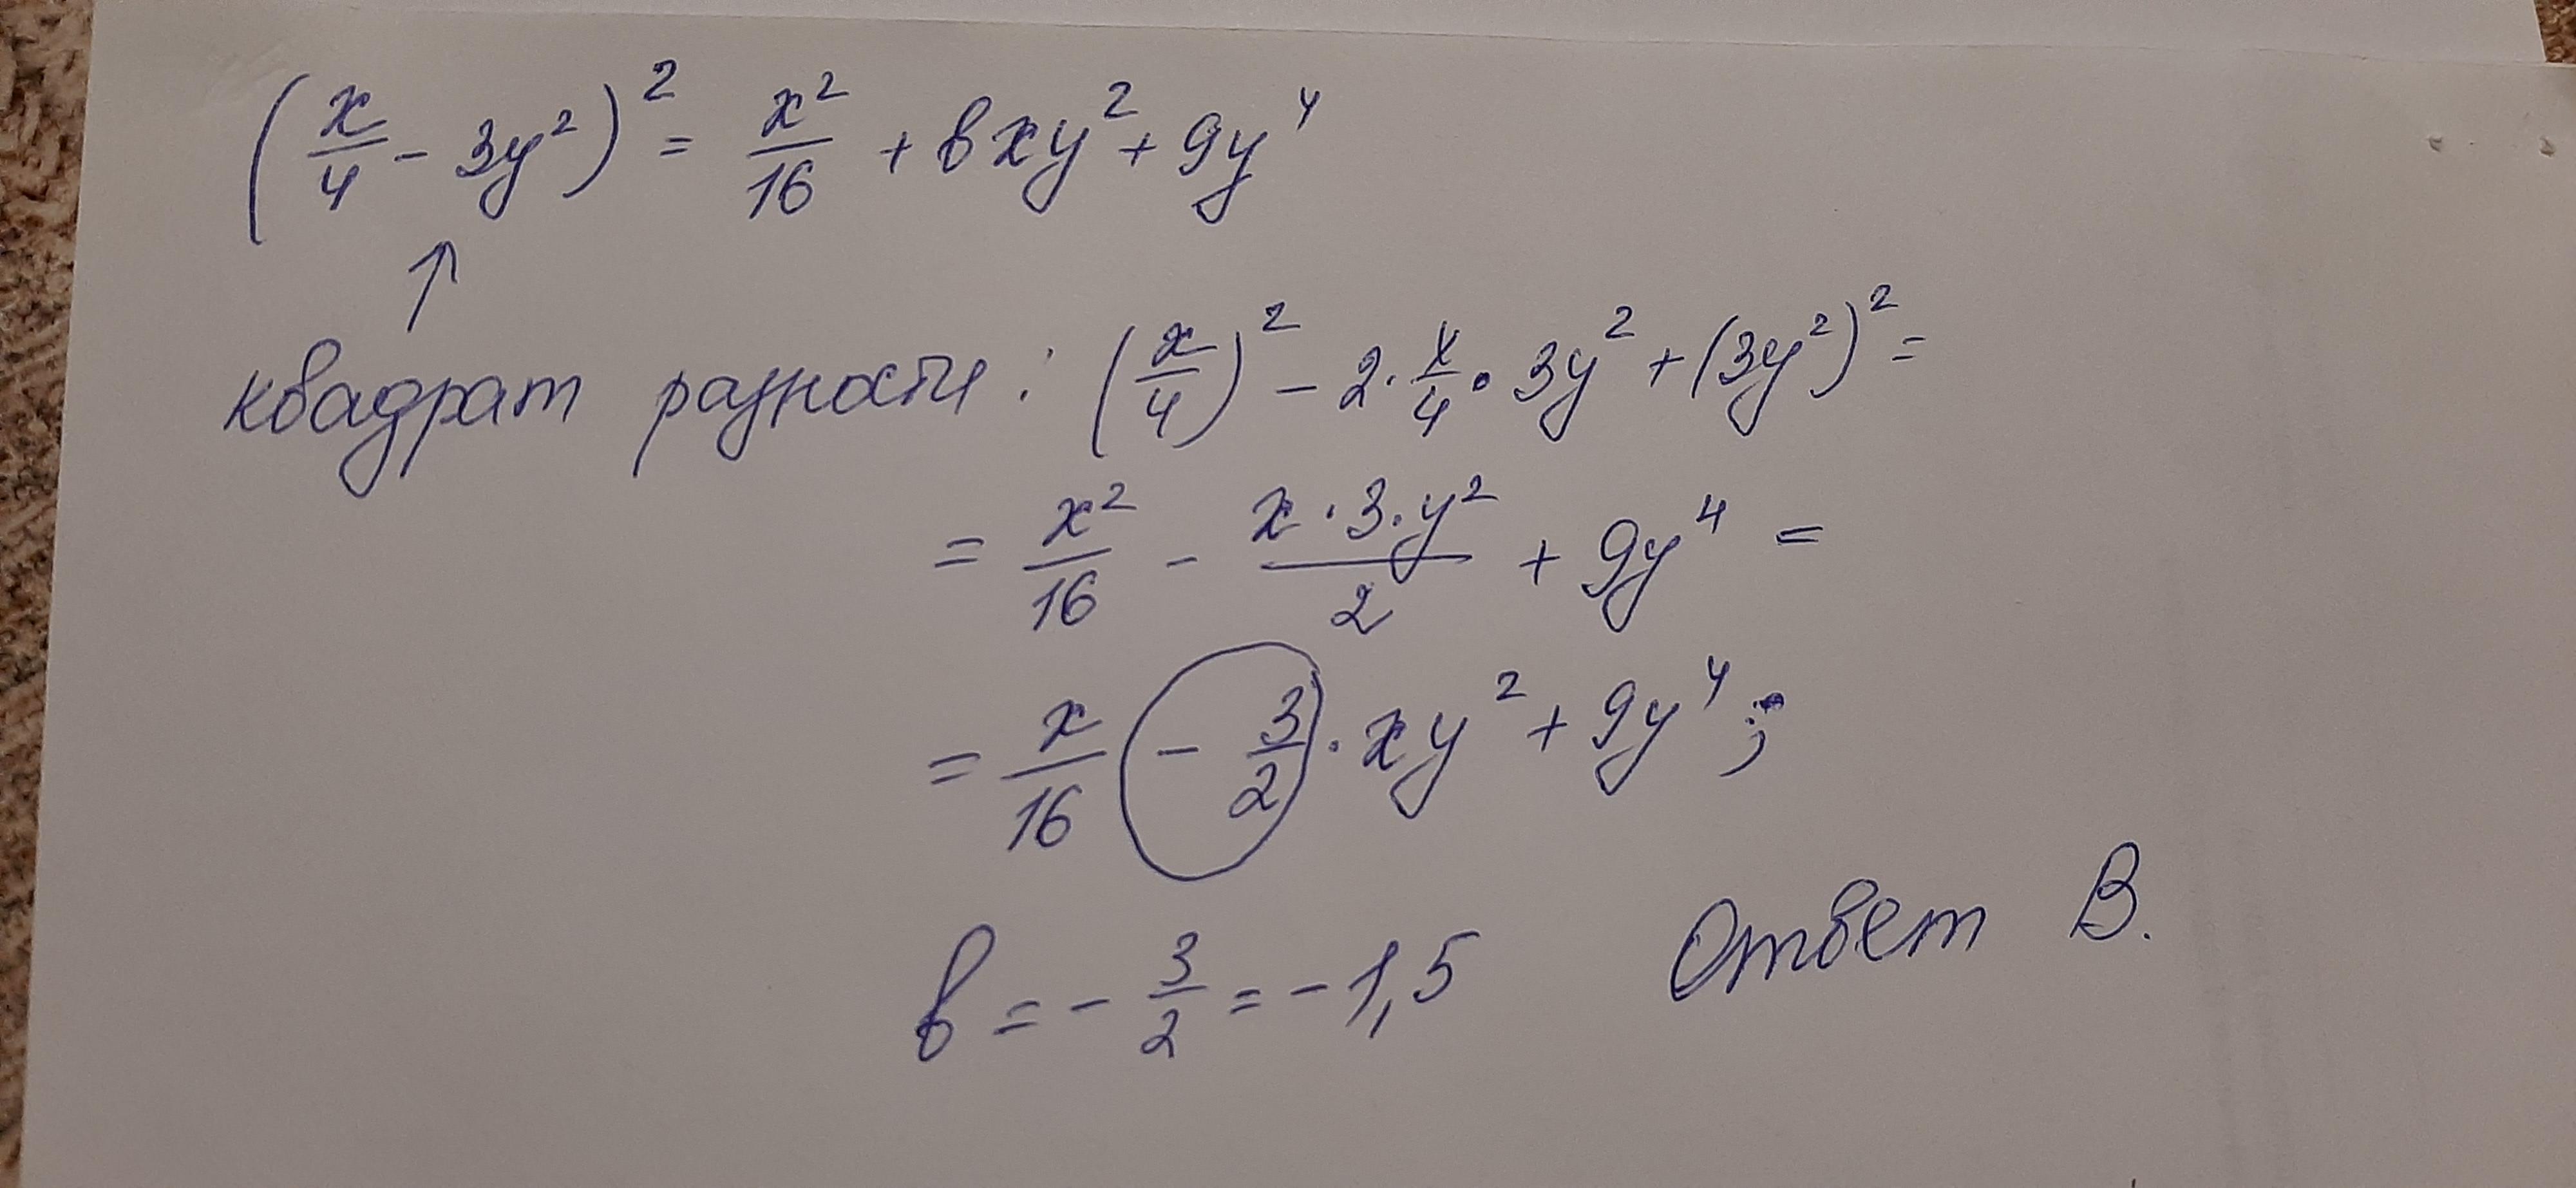 (x/4 - 3y²)² = x²/16 + вxy² + 9y⁴
↑
квадрат разности: (x/4)² - 2·x/4·3y² + (3y²)² =
= x²/16 - x·3·y²/2 + 9y⁴ =
= x/16 - 3/2·xy² + 9y⁴;
в = - 3/2 = -1,5 Ответ В.